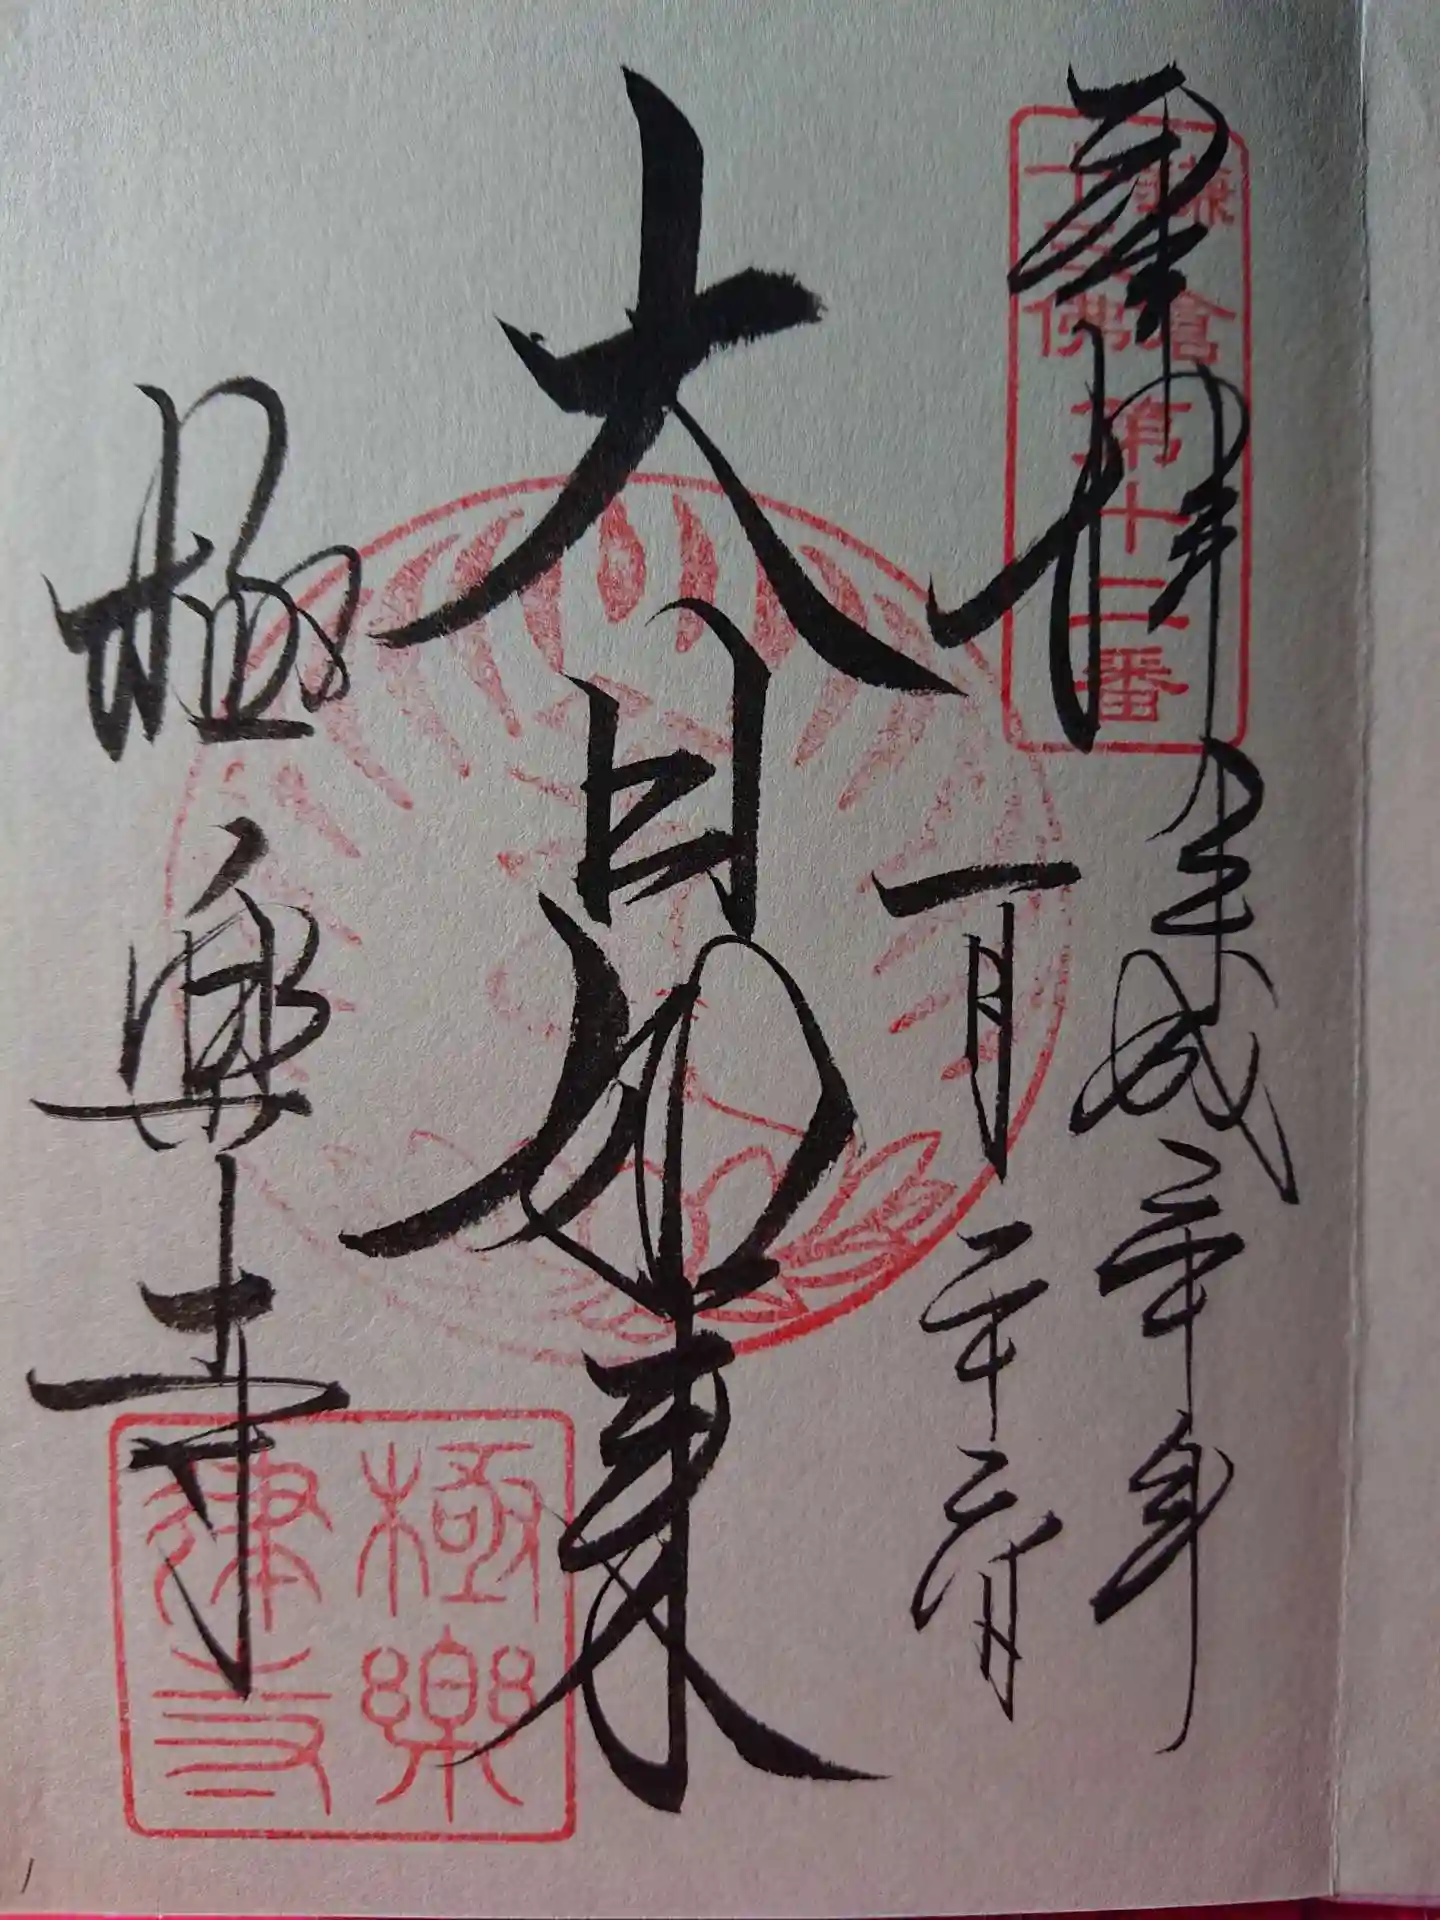 奉拝
鎌倉
十三佛
第十二番
平成三十年
一月二十六日
大日如来
極樂寺
極樂
律寺